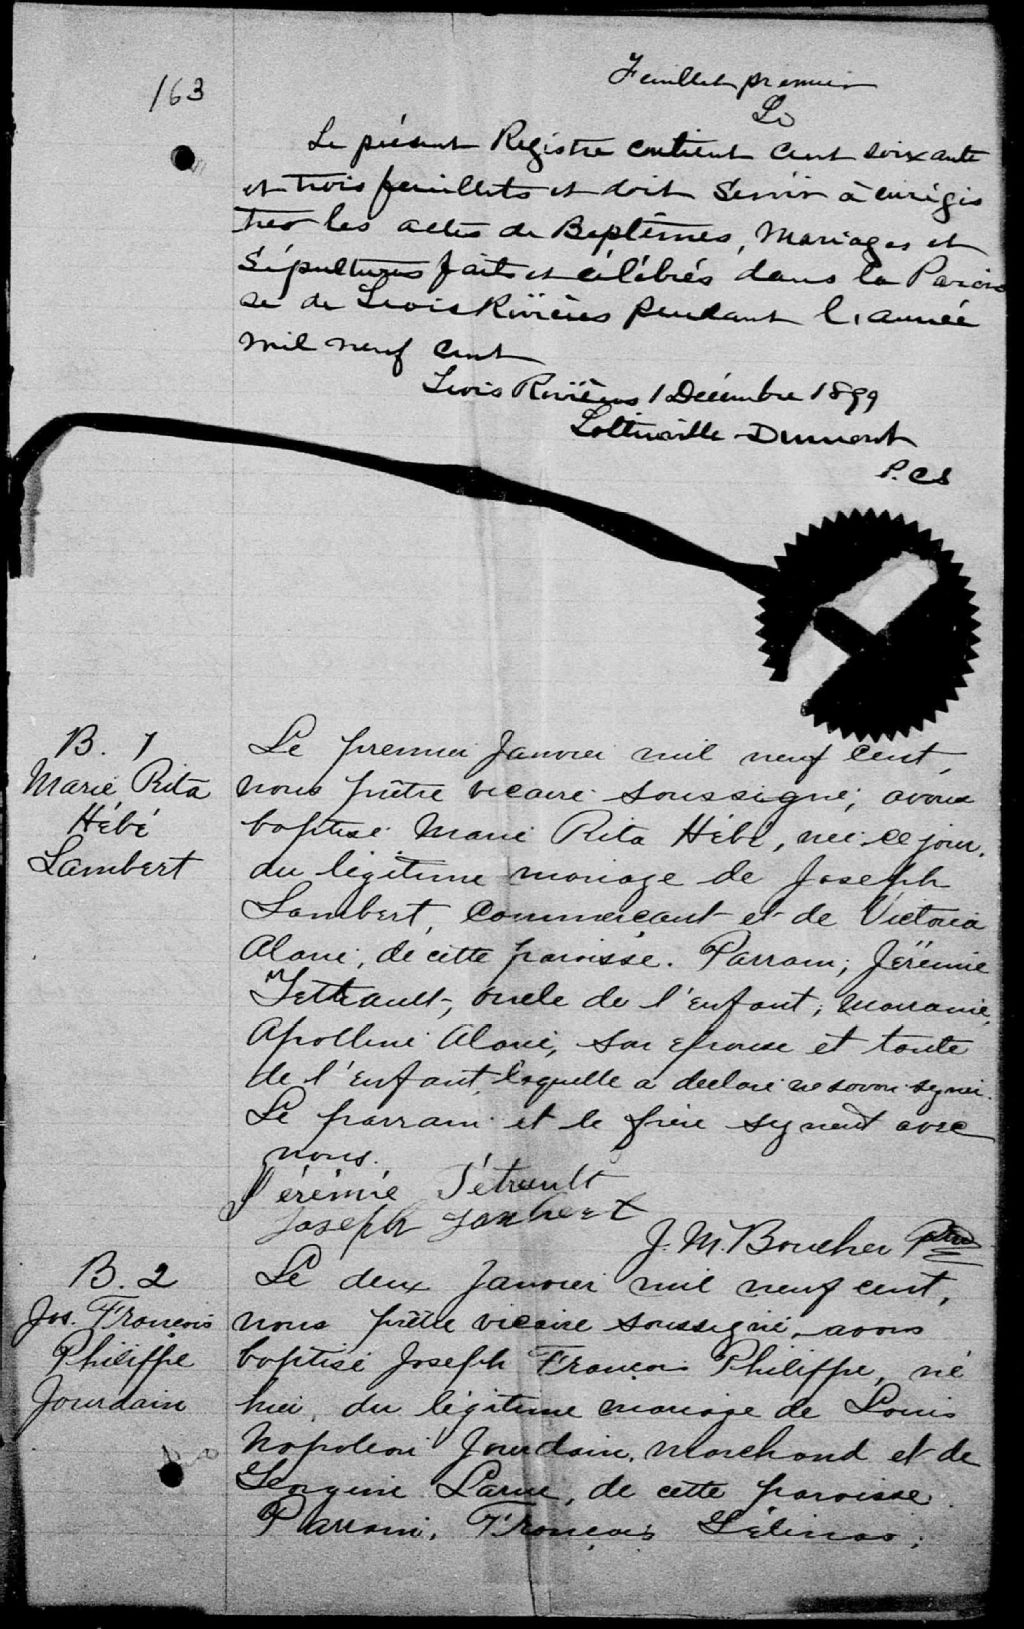 163
Feuillet premier
Le présent Registre contient cent soixante
et trois feuillets et doit servir à enrégis
trer les actes de Baptêmes, Mariages et
Sépultures faits et célébrés dans la Parois
se de Trois Rivières pendant l'année
mil neuf cent
Trois Rivières 1 Décembre 1899
Lottinville Dumont
P.CS
B. 1
Marie Rita
Hébé
Lambert
Le premier Janvier mil neuf cent,
nous prêtre vicaire soussigné, avons
baptisé Marie Rita Hébé, née ce jour,
du légitime mariage de Joseph
Lambert, commerçant et de Victoria
Alarie, de cette paroisse. Parrain, Jérémie
Tetreault, oncle de l'enfant; marraine,
Apolline Alarie, son épouse et tante
de l'enfant, laquelle a déclaré ne savoir signer.
Le parrain et le père signent avec
nous.
Jérémie Tétrault
Joseph Lambert
J. M. Boucher Ptre
B. 2
Jos. François
Philippe
Jourdain
Le deux Janvier mil neuf cent,
nous prêtre vicaire soussigné, avons
baptisé Joseph François Philippe, né
hier, du légitime mariage de Louis
Napoléon Jourdain, marchand et de
Georgine Larue, de cette paroisse.
Parrain, François Gélinas;